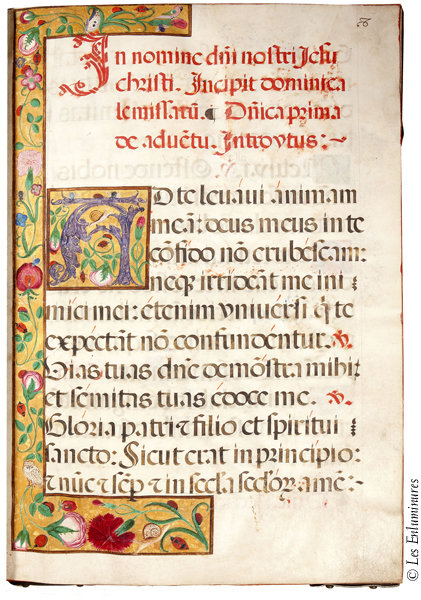 In nomine dñi nostri Jesu
christi. Incipit dominica
le missarũ. Dñica prima
de advẽtu. Introytus:~
AD te levavi animam
meã: deus meus in te
cõfido nõ erubescam:
neqꝫ irrideant me ini
mici mei: etenim vniversi q̃ te
expectãt nõ confundentur. ℣.
Vias tuas dñe demõstra mihi:
et semitas tuas edoce me. ℣.
Gloria patri ⁊ filio et spiritui
sancto: Sicut erat in principio:
⁊ nũc ⁊ sẽp ⁊ in secl̃a secl̃oꝝ amẽ:~
© Les Enluminures